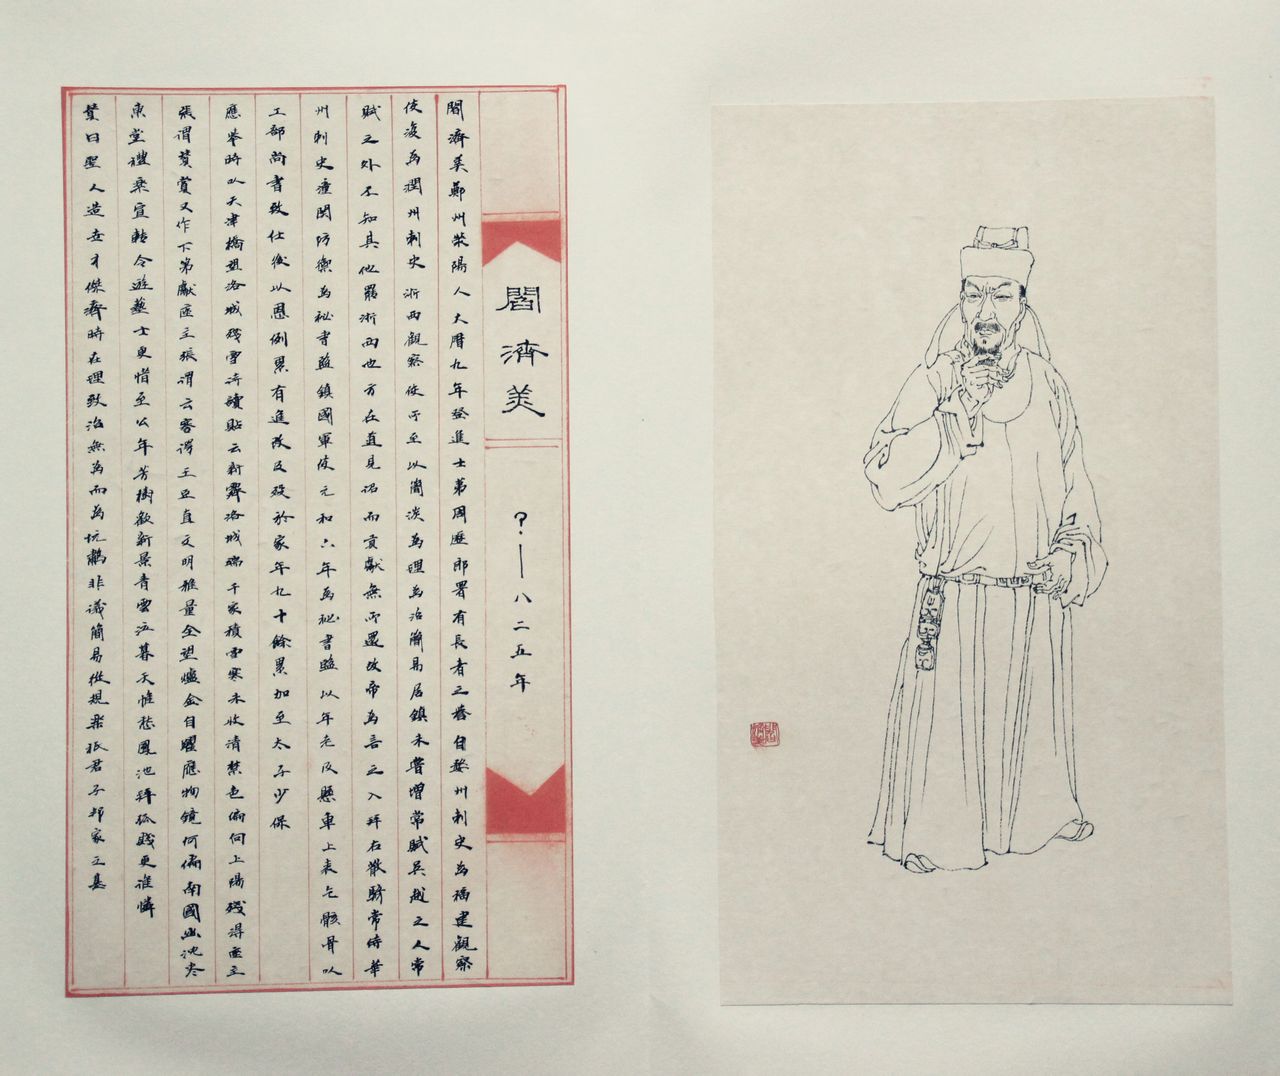 閻濟美
？—八二五年
閻濟美鄭州滎陽人大曆九年登進士第周歷郎署有長者之譽自婺州刺史為福建觀察
使復為潤州刺史浙西觀察使所至以簡淡為理為治簡易居鎮未嘗增常賦吳越之人常
賦之外不知其他罷浙西也方在道見詔而貢獻無所還故帝為言之入拜右散騎常侍華
州刺史潼関防禦為祕書監鎮國軍使元和六年為祕書監以年老及懸車上表乞骸骨以
工部尚書致仕後以恩例累有進改及歿於家年九十餘累加至太子少保
應舉時以天津橋望洛城殘雪詩牘貼云新霽洛城端千家積雪寒未收清禁色偏向上陽殘得座主
張謂賛賞又作下第獻座主張謂云謇諤王臣直文明雅量全望爐金自躍應物鏡何偏南國幽沈尽
東堂禮樂宣轉令遊藝士更惜至公年芳樹歡新景青雲泣暮天惟愁鳳池拜孤賤更誰憐
賛曰聖人造世才傑濟時在理致治無為而為坑鷸非議簡易從規樂祇君子邦家之基